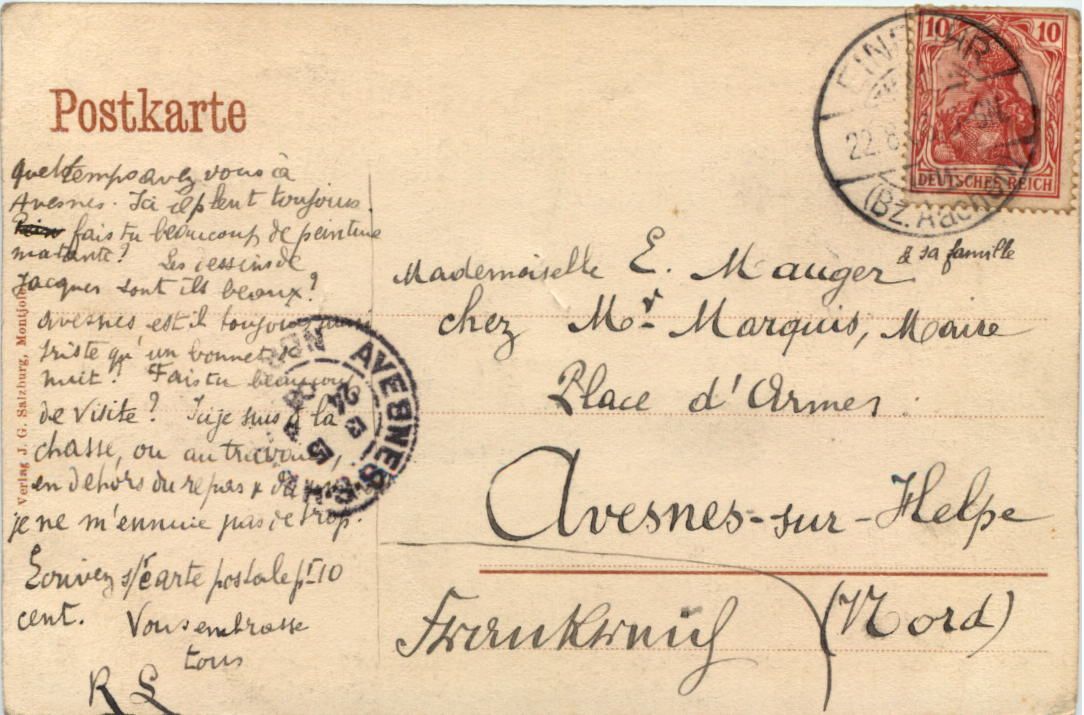 Postkarte
quel temps avez vous à
Avesnes. Ici il pleut toujours.
fais tu beaucoup de peinture
matante? Les dessins de
Jacques sont ils beaux?
Avesnes est il toujours
triste qu'un bonnet de
nuit? Fais tu beaucoup
de visite? Ici je suis à la
chasse, ou au travail,
en dehors du repas
je ne m'ennuie pas de trop.
Ecrivez s/ carte postale pr 10
cent. Vous embrasse
tous
R S
Verlag J. G. Salzburg, Montjoie
10 10
DEUTSCHES REICH
22.8
(Bz. Aachen)
Mademoiselle E. Mauger & sa famille
chez Mr Marquis, Maire
Place d'Armes
Avesnes-sur-Helpe
(Nord)
Frankreich
AVESNES-S-H